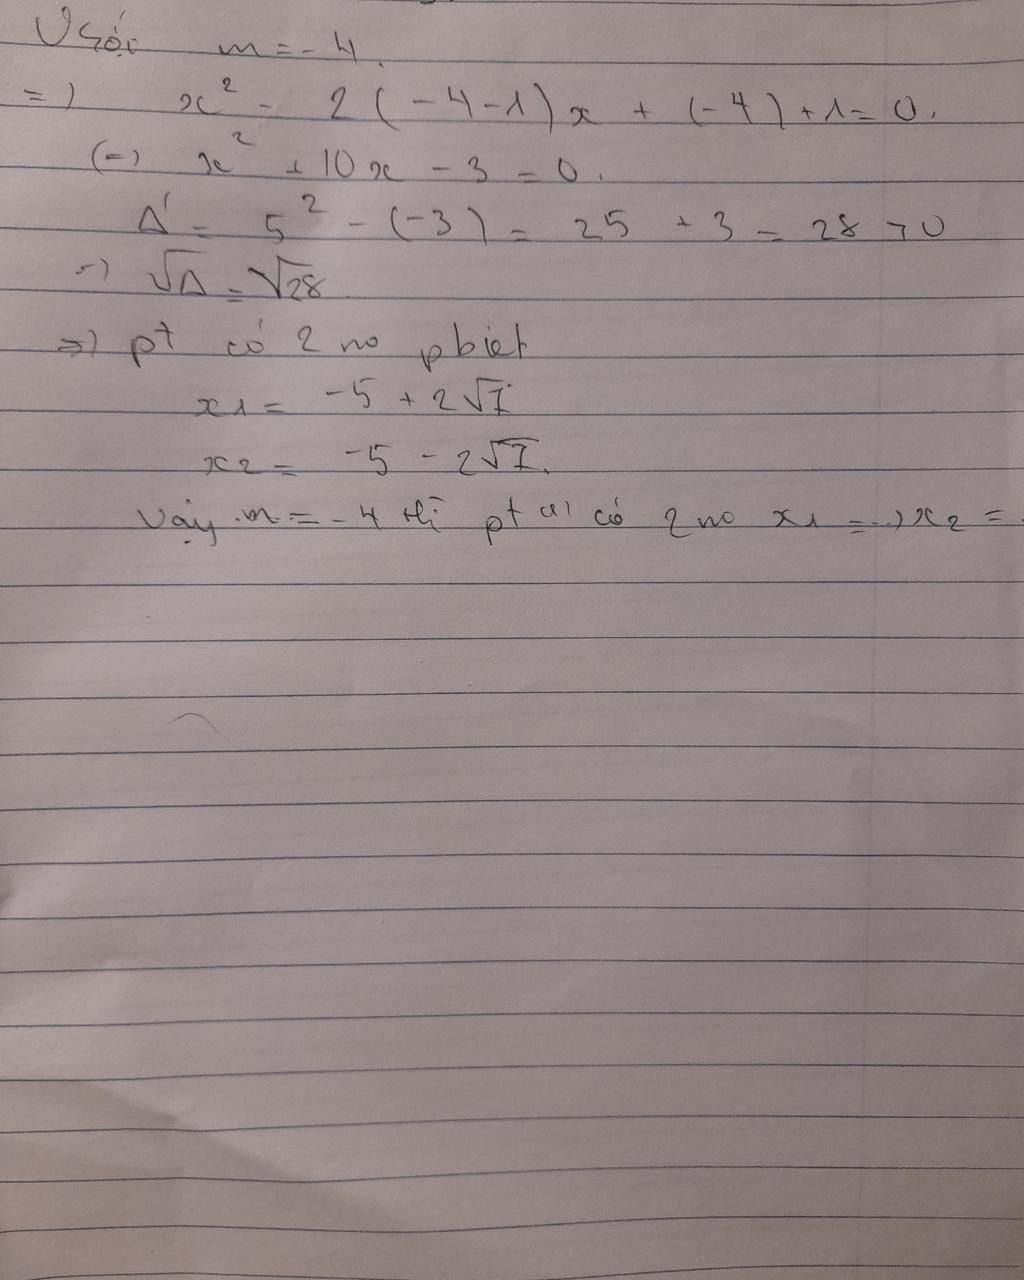 Với m = -4.
=) x² - 2(-4-1)x + (-4)+1=0.
(=) x² + 10x - 3 = 0.
Δ' = 5² - (-3) = 25 + 3 = 28 > 0
=) √Δ = √28
=) pt có 2 no pbiệt
x1 = -5 + 2√7
x2 = -5 - 2√7.
Vậy m = -4 thì pt (1) có 2 no x1 = ..) x2 = .